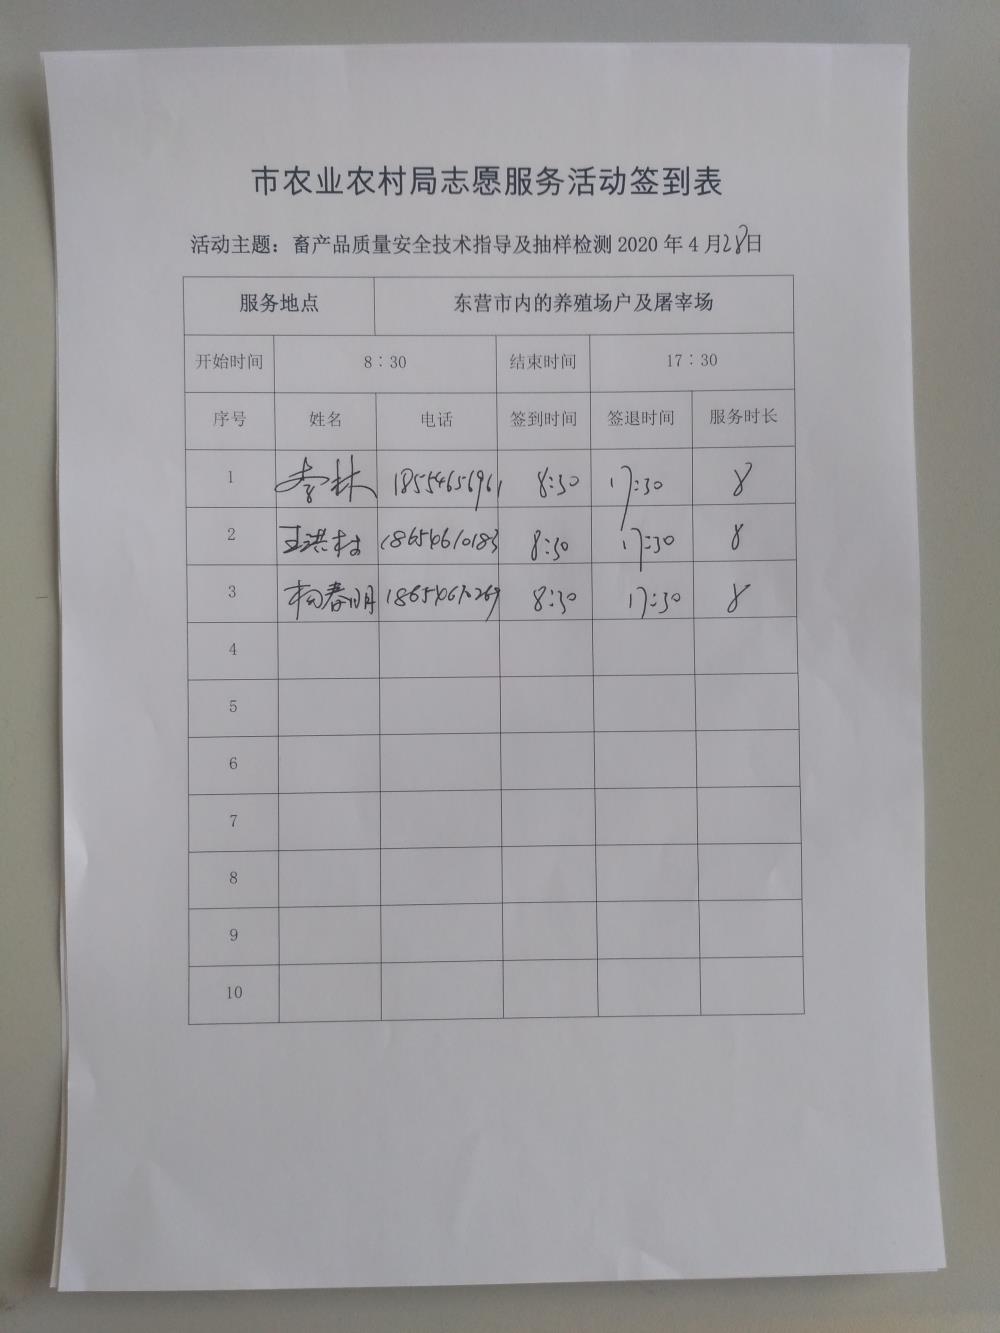 市农业农村局志愿服务活动签到表
活动主题：畜产品质量安全技术指导及抽样检测 2020 年 4 月28日
服务地点 东营市内的养殖场户及屠宰场
开始时间 8：30 结束时间 17：30
序号 姓名 电话 签到时间 签退时间 服务时长
1 李林 18554656961 8:30 17:30 8
2 王洪村 18654610183 8:30 17:30 8
3 杨春明 18654670269 8:30 17:30 8
4
5
6
7
8
9
10